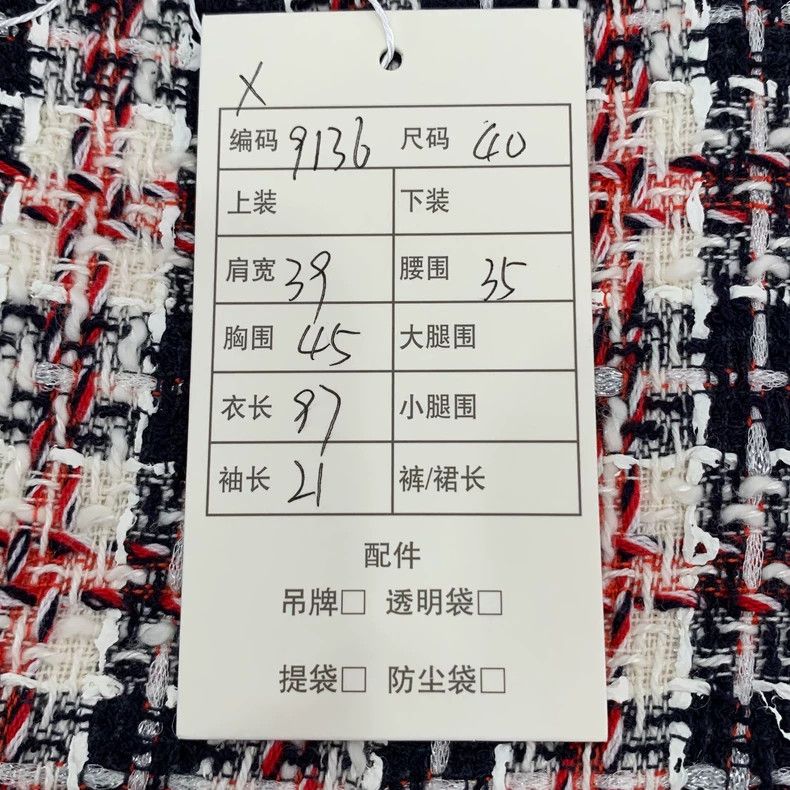 X
编码 9136 尺码 40
上装 下装
肩宽 39 腰围 35
胸围 45 大腿围
衣长 97 小腿围
袖长 21 裤/裙长
配件
吊牌□ 透明袋□
提袋□ 防尘袋□